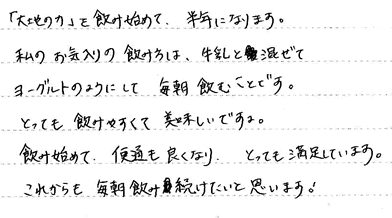 「大地の力」を飲み始めて、半年になります。
私のお気入りの飲み方は、牛乳と混ぜて
ヨーグルトのようにして毎朝飲むことです。
とっても飲みやすくて美味しいですよ。
飲み始めて、便通も良くなり、とっても満足しています。
これからも毎朝飲み続けたいと思います!